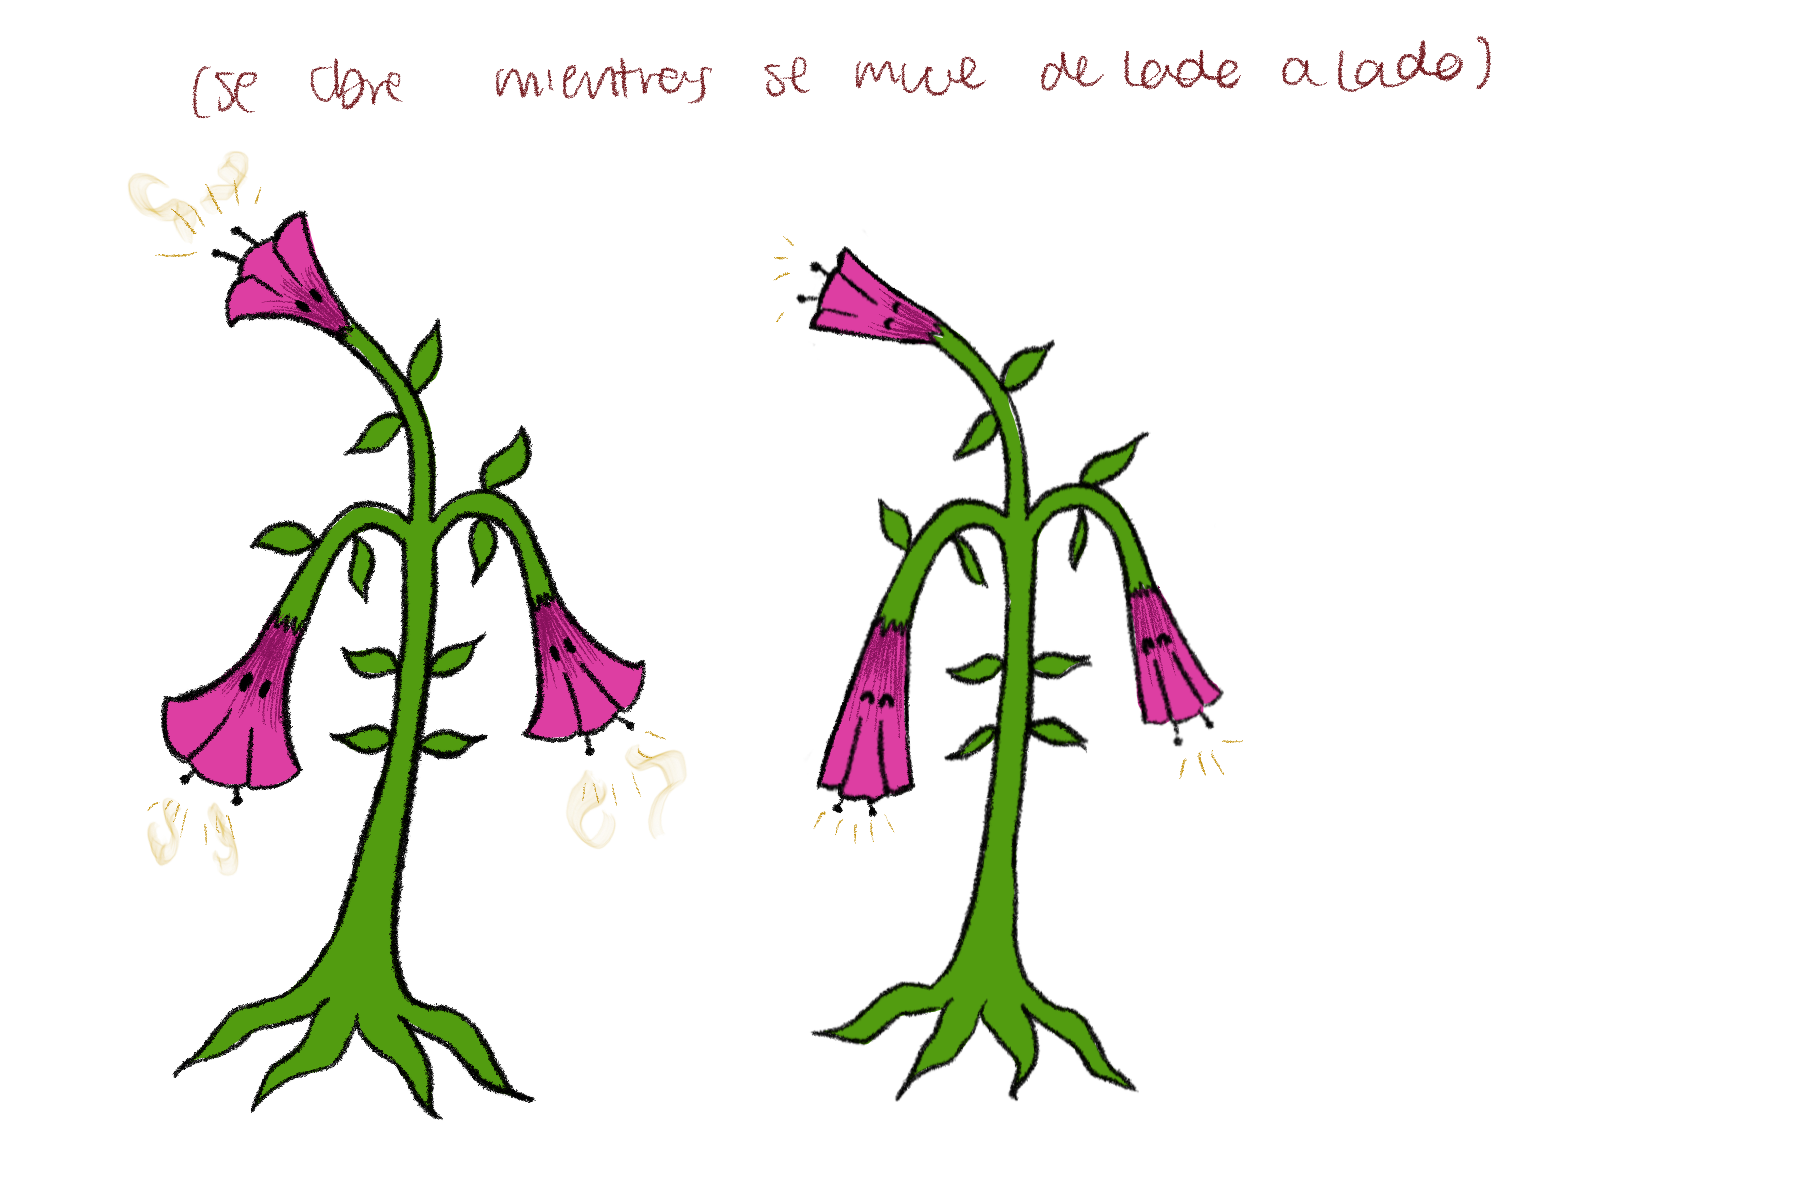 (se abre mientras se mueve de lado a lado)